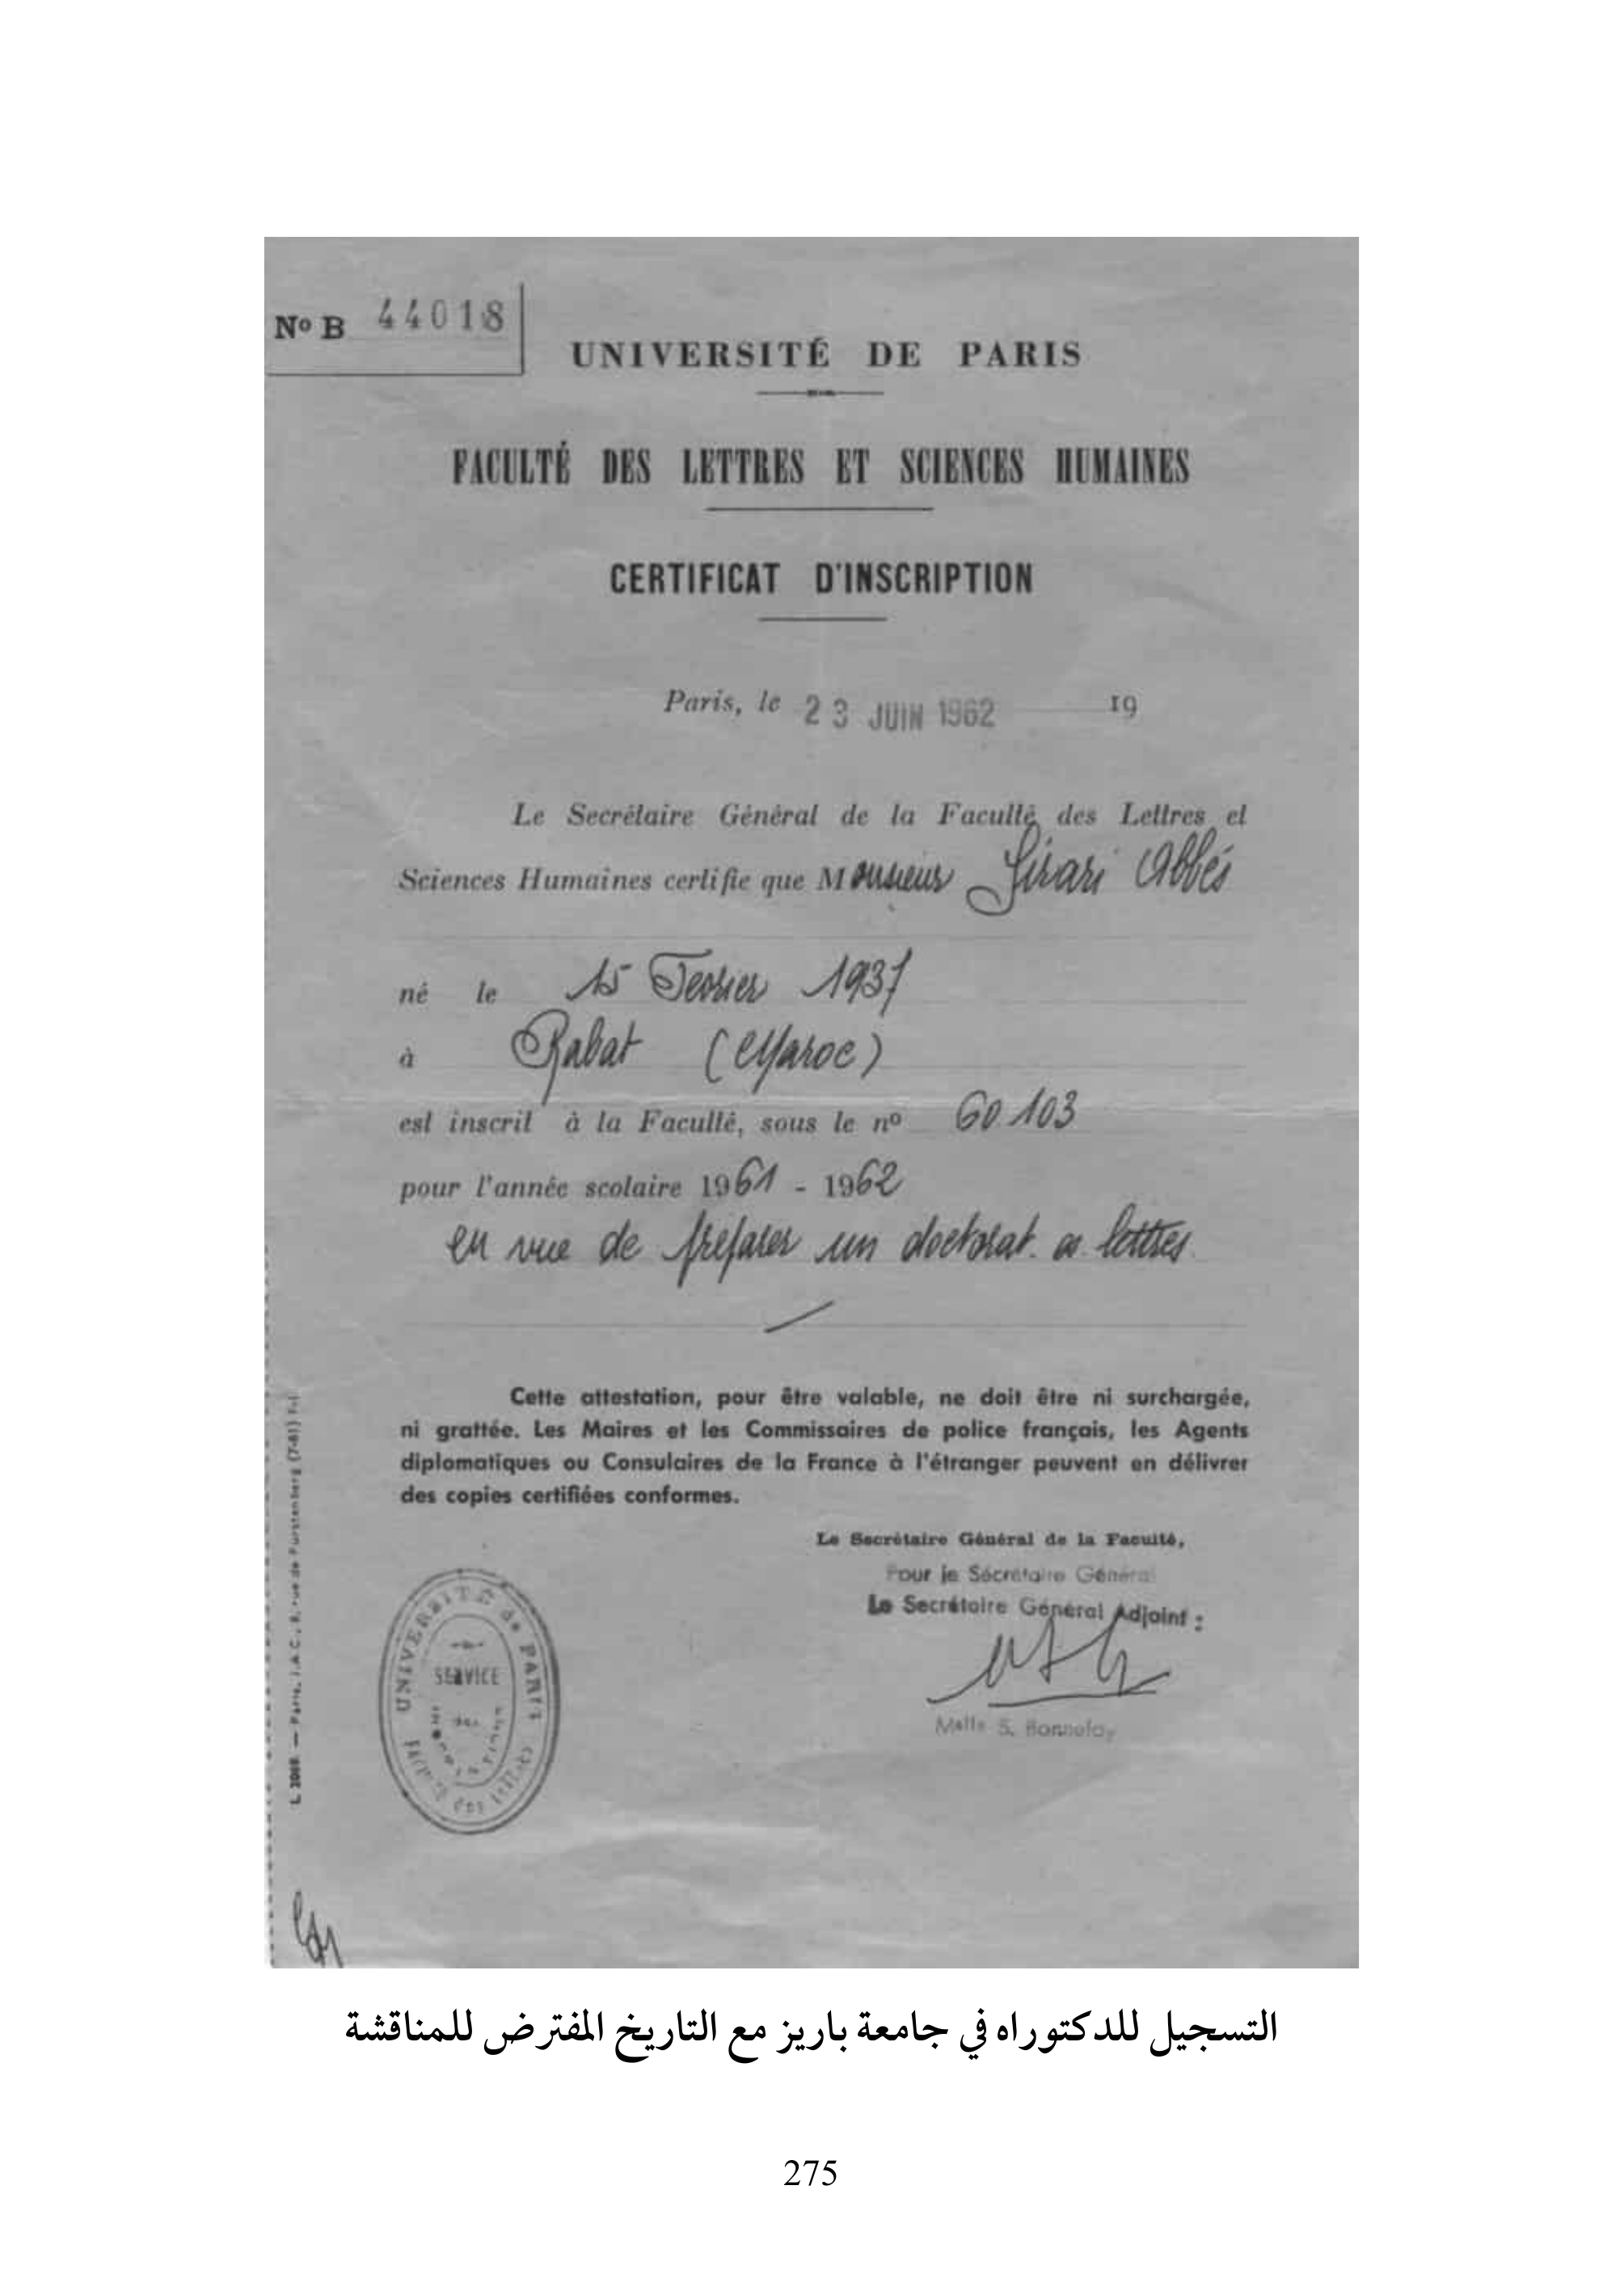 Nº B 44018
UNIVERSITÉ DE PARIS
FACULTÉ DES LETTRES ET SCIENCES HUMAINES
CERTIFICAT D'INSCRIPTION
Paris, le 23 JUIN 1962 19
Le Secrétaire Général de la Faculté des Lettres et
Sciences Humaines certifie que Monsieur Jirari Abbés
né le 15 Fevrier 1937
à Rabat (Maroc)
est inscrit à la Faculté, sous le nº 60103
pour l'année scolaire 1961 - 1962
en vue de preparer un doctorat es lettres
Cette attestation, pour être valable, ne doit être ni surchargée,
ni grattée. Les Maires et les Commissaires de police français, les Agents
diplomatiques ou Consulaires de la France à l'étranger peuvent en délivrer
des copies certifiées conformes.
Le Secrétaire Général de la Faculté,
Pour le Secrétaire Général
Le Secrétaire Général Adjoint :
Melle S. Bonnefoy
UNIVERSITÉ de PARIS
SERVICE
FACULTÉ DES LETTRES
L. 2069. — Paris, I.A.C., 8, rue de Furstenberg (7-61)
التسجيل للدكتوراه في جامعة باريز مع التاريخ المفترض للمناقشة
275